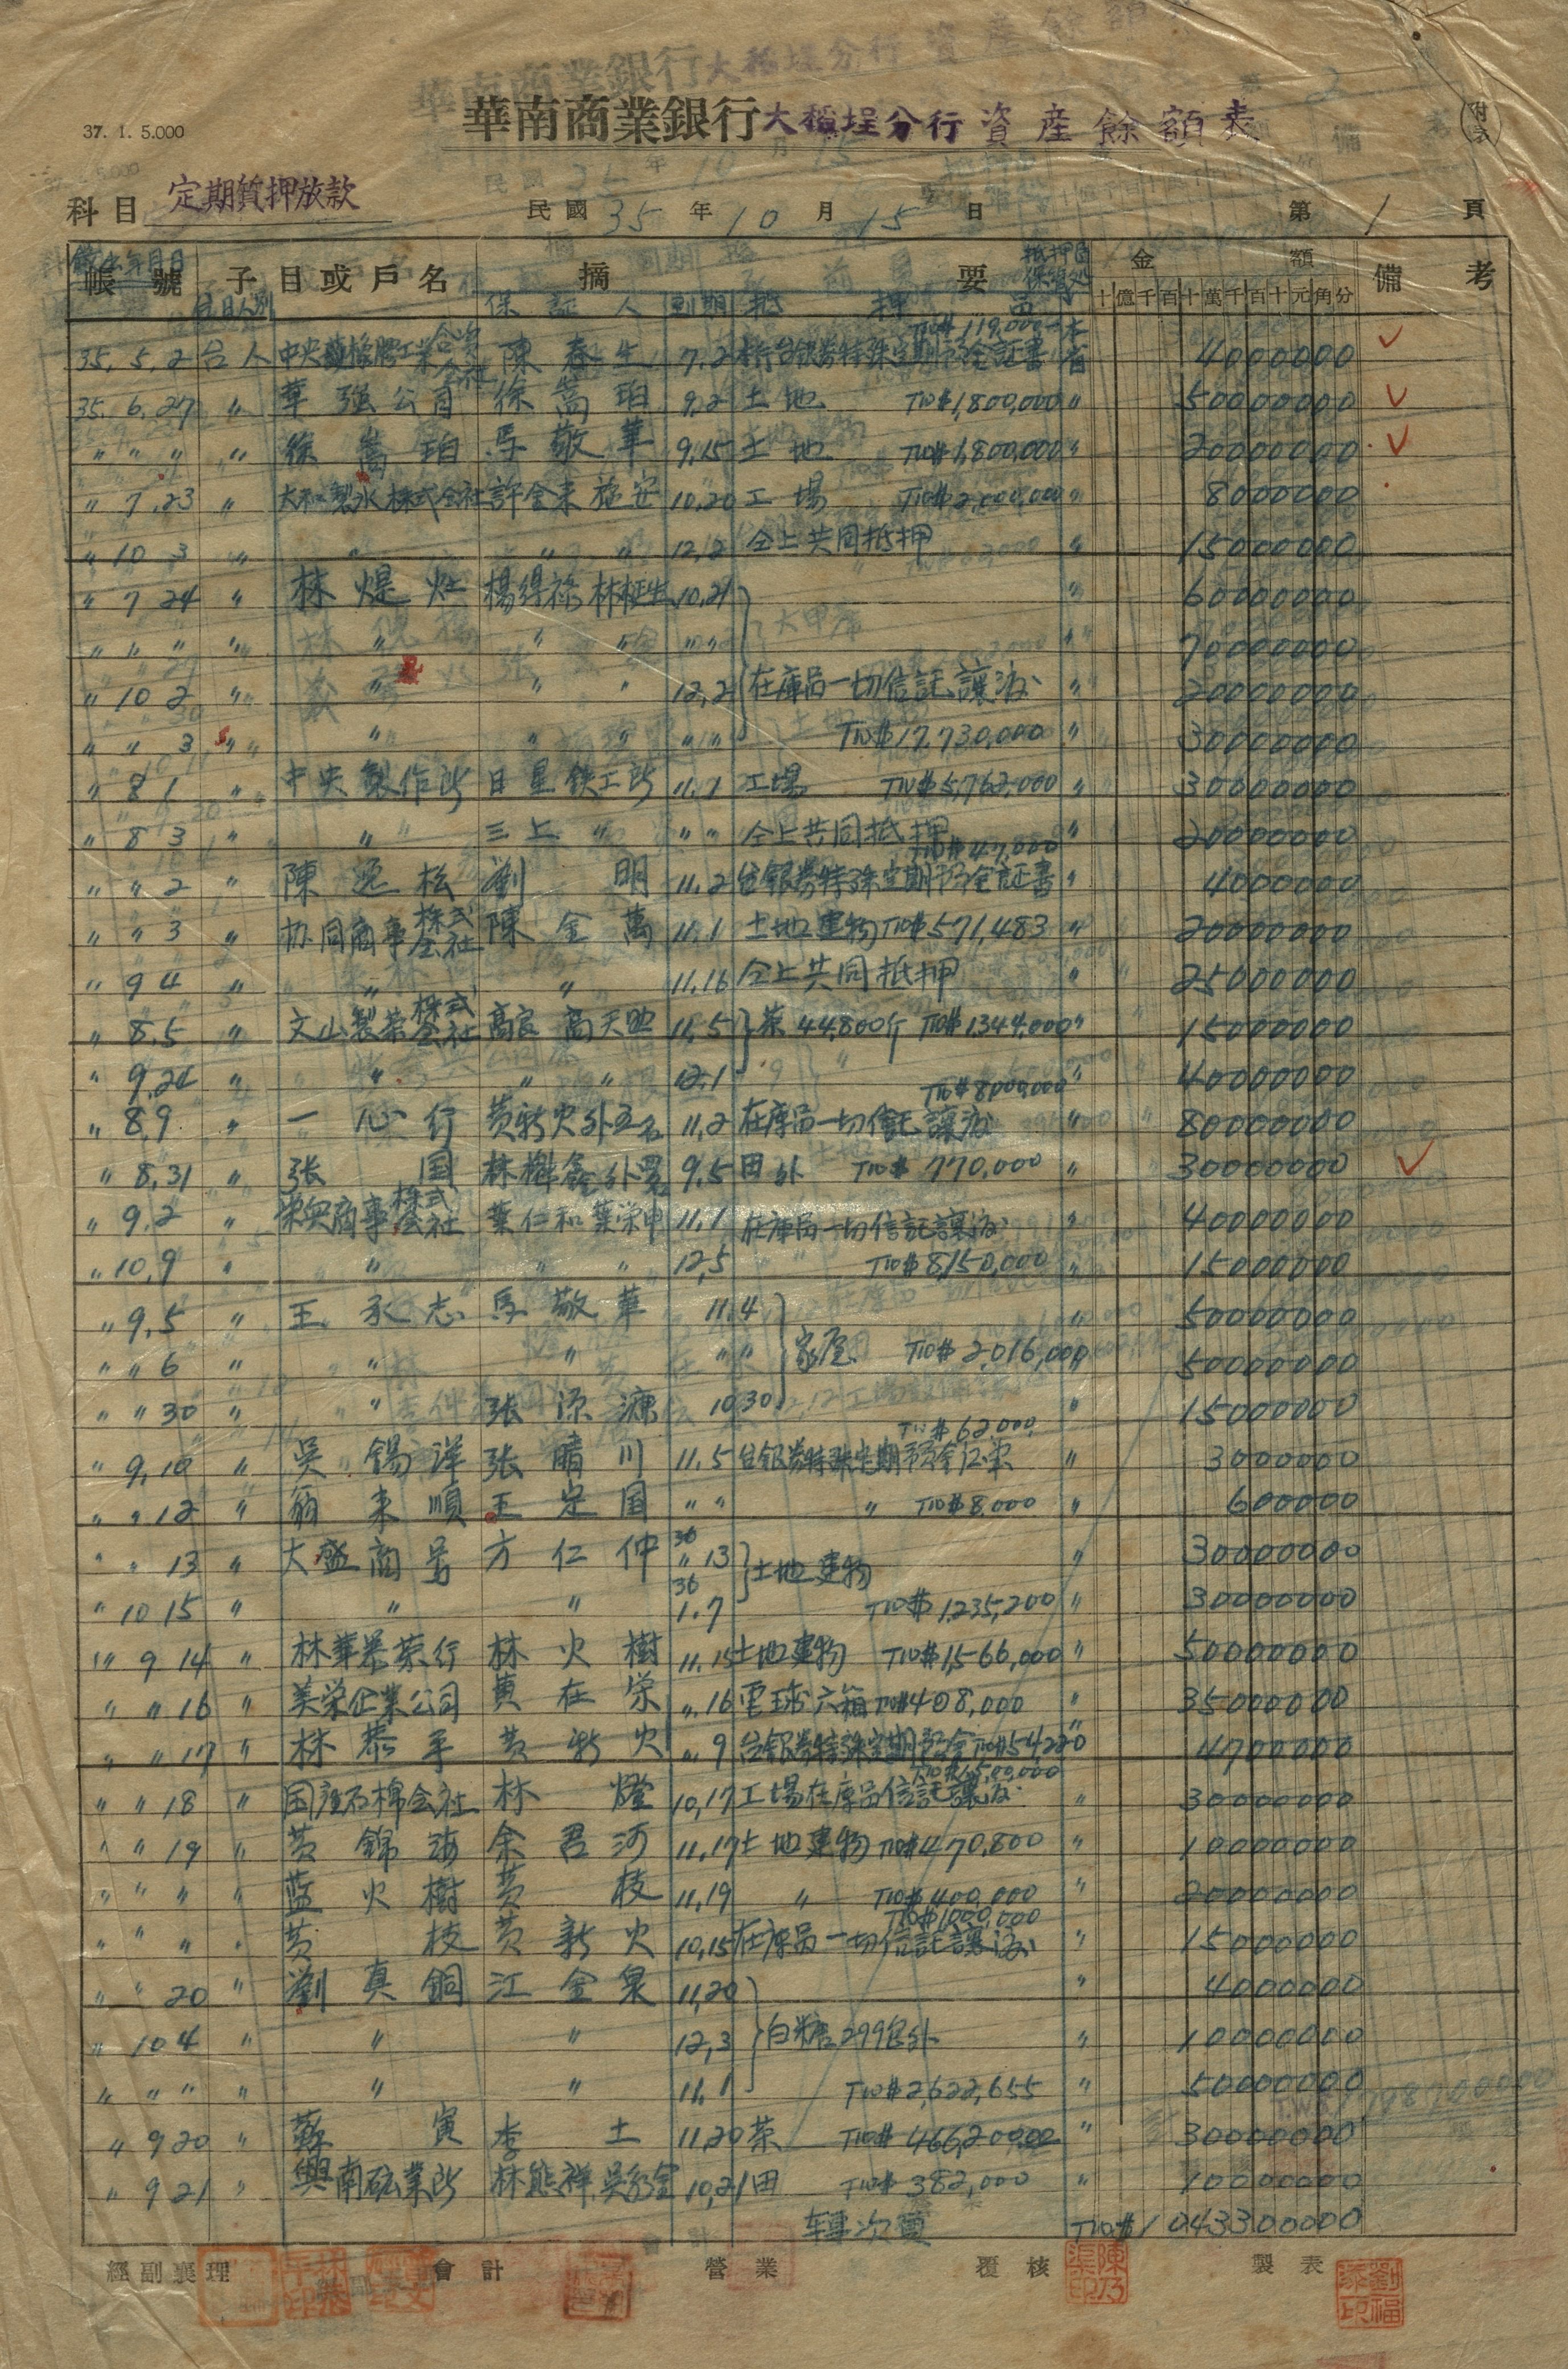 37. 1. 5.000
華南商業銀行大稻埕分行資産餘額表
附表
科目 定期質押放款 民國 35 年 10 月 15 日 第 1 頁
帳號 子目或戶名 摘要 金額 備考
保証人 到期 抵押品
十億千百十萬千百十元角分
35. 5. 2 台人 陳春生 7.2 TW$119,000 本省 4000000
35. 6. 27 〃 華強公司 徐嵩珀 9.2 土地 TW$1,800,000 〃 50000000
〃 〃 〃 〃 徐嵩珀 馬敬華 9.15 土地 TW$1,800,000 〃 20000000
〃 7.23 〃 大和製氷株式会社 10.20 工場 TW$2,000,000 〃 8000000
〃 10 3 〃 〃 〃 〃 12.2 仝上共同抵押 〃 15000000
〃 7 24 〃 林煶灶 楊得祿 林挺生 10.21 〃 60000000
〃 〃 〃 〃 〃 〃 〃 〃 〃 〃 70000000
〃 10 2 〃 〃 〃 〃 12.2 在庫品一切信託讓渡 〃 20000000
〃 〃 3 〃 〃 〃 〃 〃 〃 TW$17,730,000 〃 30000000
〃 8 1 〃 中央製作所 日星鉄工所 11.1 工場 TW$5,762,000 〃 30000000
〃 8 3 〃 〃 三上 〃 〃 〃 仝上共同抵押 〃 20000000
〃 〃 2 〃 陳逸松 劉明 11.2 台銀券特殊定期預金証書 TW$47,000 〃 4000000
〃 〃 3 〃 协同商事株式会社 陳金萬 11.1 土地建物 TW$571,483 〃 20000000
〃 9 4 〃 〃 〃 11.16 仝上共同抵押 〃 25000000
〃 8.5 〃 文山製茶株式会社 高良 高天 11.5 茶 44,800斤 TW$1,344,000 〃 15000000
〃 9.24 〃 〃 〃 〃 12.1 〃 40000000
〃 8.9 〃 一心行 黄新火外五名 11.2 在庫品一切信託讓渡 TW$8,000,000 〃 80000000
〃 8.31 〃 張国 9.5 田外 TW$770,000 〃 30000000
〃 9.2 〃 栄興商事株式会社 葉仁和 葉栄申 11.1 在庫品一切信託讓渡 〃 40000000
〃 10.9 〃 〃 〃 〃 12.5 TW$8,150,000 〃 15000000
〃 9.5 〃 王承志 馬敬華 11.4 〃 50000000
〃 〃 6 〃 〃 〃 〃 〃 家屋 TW$2,016,000 〃 50000000
〃 〃 30 〃 〃 張添源 10.30 〃 15000000
〃 9.10 〃 吳錫洋 張晴川 11.5 台銀券特殊定期預金証書 TW$62,000 〃 3000000
〃 〃 12 〃 翁来順 王定国 〃 〃 〃 TW$8,000 〃 600000
〃 〃 13 〃 大盛商号 方仁仲 36 〃 13 土地建物 〃 30000000
〃 10 15 〃 〃 〃 36 1.7 TW$1,235,200 〃 30000000
〃 9 14 〃 林華泰茶行 林火樹 11.15 土地建物 TW$1,566,000 〃 50000000
〃 〃 16 〃 美栄企業公司 黄在栄 〃 16 電球六箱 TW$408,000 〃 35000000
〃 〃 17 〃 林泰平 黄新火 〃 9 台銀券特殊定期預金 TW$54,220 〃 4700000
〃 〃 18 〃 国産石棉会社 林燈 10.17 工場在庫品信託讓渡 〃 30000000
〃 〃 19 〃 黄錦海 余君河 11.17 土地建物 TW$470,800 〃 10000000
〃 〃 〃 〃 藍火樹 黄枝 11.19 〃 TW$400,000 〃 20000000
〃 〃 〃 〃 黄枝 黄新火 10.15 在庫品一切信託讓渡 TW$1,000,000 〃 15000000
〃 〃 20 〃 劉真銅 江金泉 11.20 〃 4000000
〃 10 4 〃 〃 〃 12.3 白糖299包外 〃 10000000
〃 〃 〃 〃 〃 〃 11.1 TW$2,622,655 〃 50000000
〃 9 20 〃 蘇寅 李土 11.20 茶 TW$466,200.00 〃 30000000
〃 9 21 〃 興南砿業所 林熊祥 10.21 田 TW$382,000 〃 10000000
轉次頁 TW$1043300000
經副襄理 會計 營業 覆核 製表
陳乃渠印
劉福添印